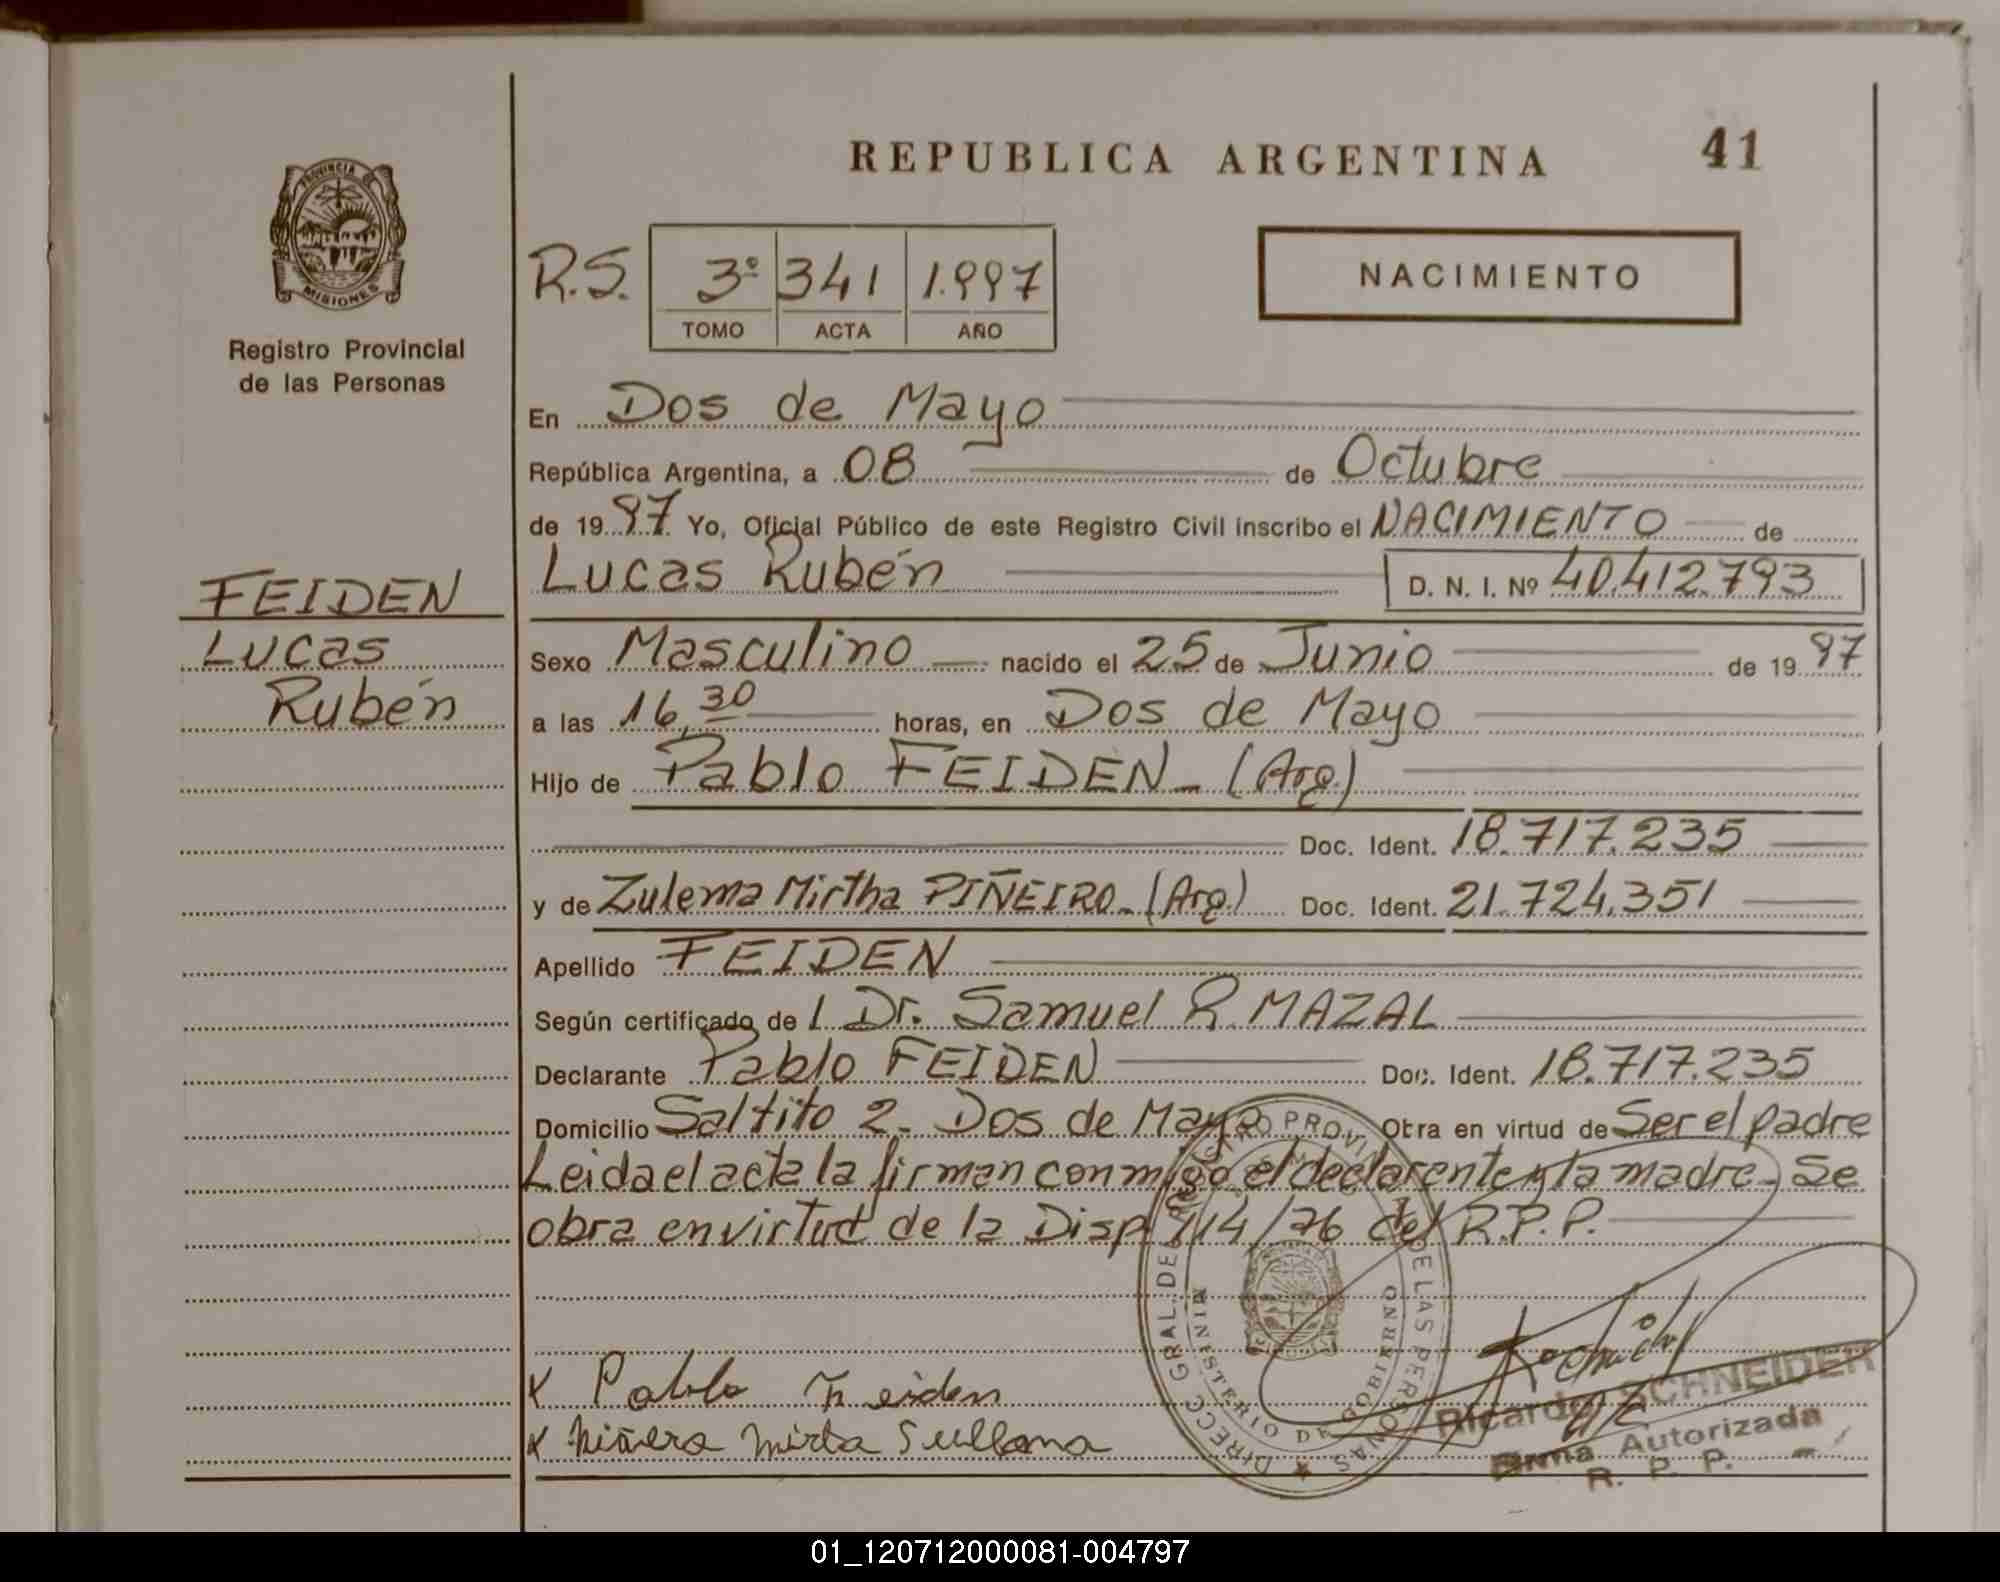 REPUBLICA ARGENTINA
41
PROVINCIA DE
MISIONES
Registro Provincial
de las Personas
R.S.
3º 341 1.997
TOMO ACTA AÑO
NACIMIENTO
En Dos de Mayo
República Argentina, a 08 de Octubre
de 19 97 Yo, Oficial Público de este Registro Civil inscribo el NACIMIENTO de
Lucas Rubén D. N. I. Nº 40.412.793
FEIDEN
Lucas
Rubén
Sexo Masculino nacido el 25 de Junio de 19 97
a las 16,30 horas, en Dos de Mayo
Hijo de Pablo FEIDEN_ (Arg.)
Doc. Ident. 18.717.235
y de Zulema Mirtha PIÑEIRO_ (Arg.) Doc. Ident. 21.724.351
Apellido FEIDEN
Según certificado de l Dr. Samuel R. MAZAL
Declarante Pablo FEIDEN Doc. Ident. 18.717.235
Domicilio Saltito 2_ Dos de Mayo Obra en virtud de Ser el padre
Leida el acta la firman conmigo el declarante y la madre_ Se
obra en virtud de la Disp. 114/76 del R.P.P.
DIRECC GRAL. DEL REGISTRO PROVINCIAL DE LAS PERSONAS
MINISTERIO DE GOBIERNO
x Pablo Feiden
x Mirta
Ricardo SCHNEIDER
Firma Autorizada
R. P. P.
01_120712000081-004797